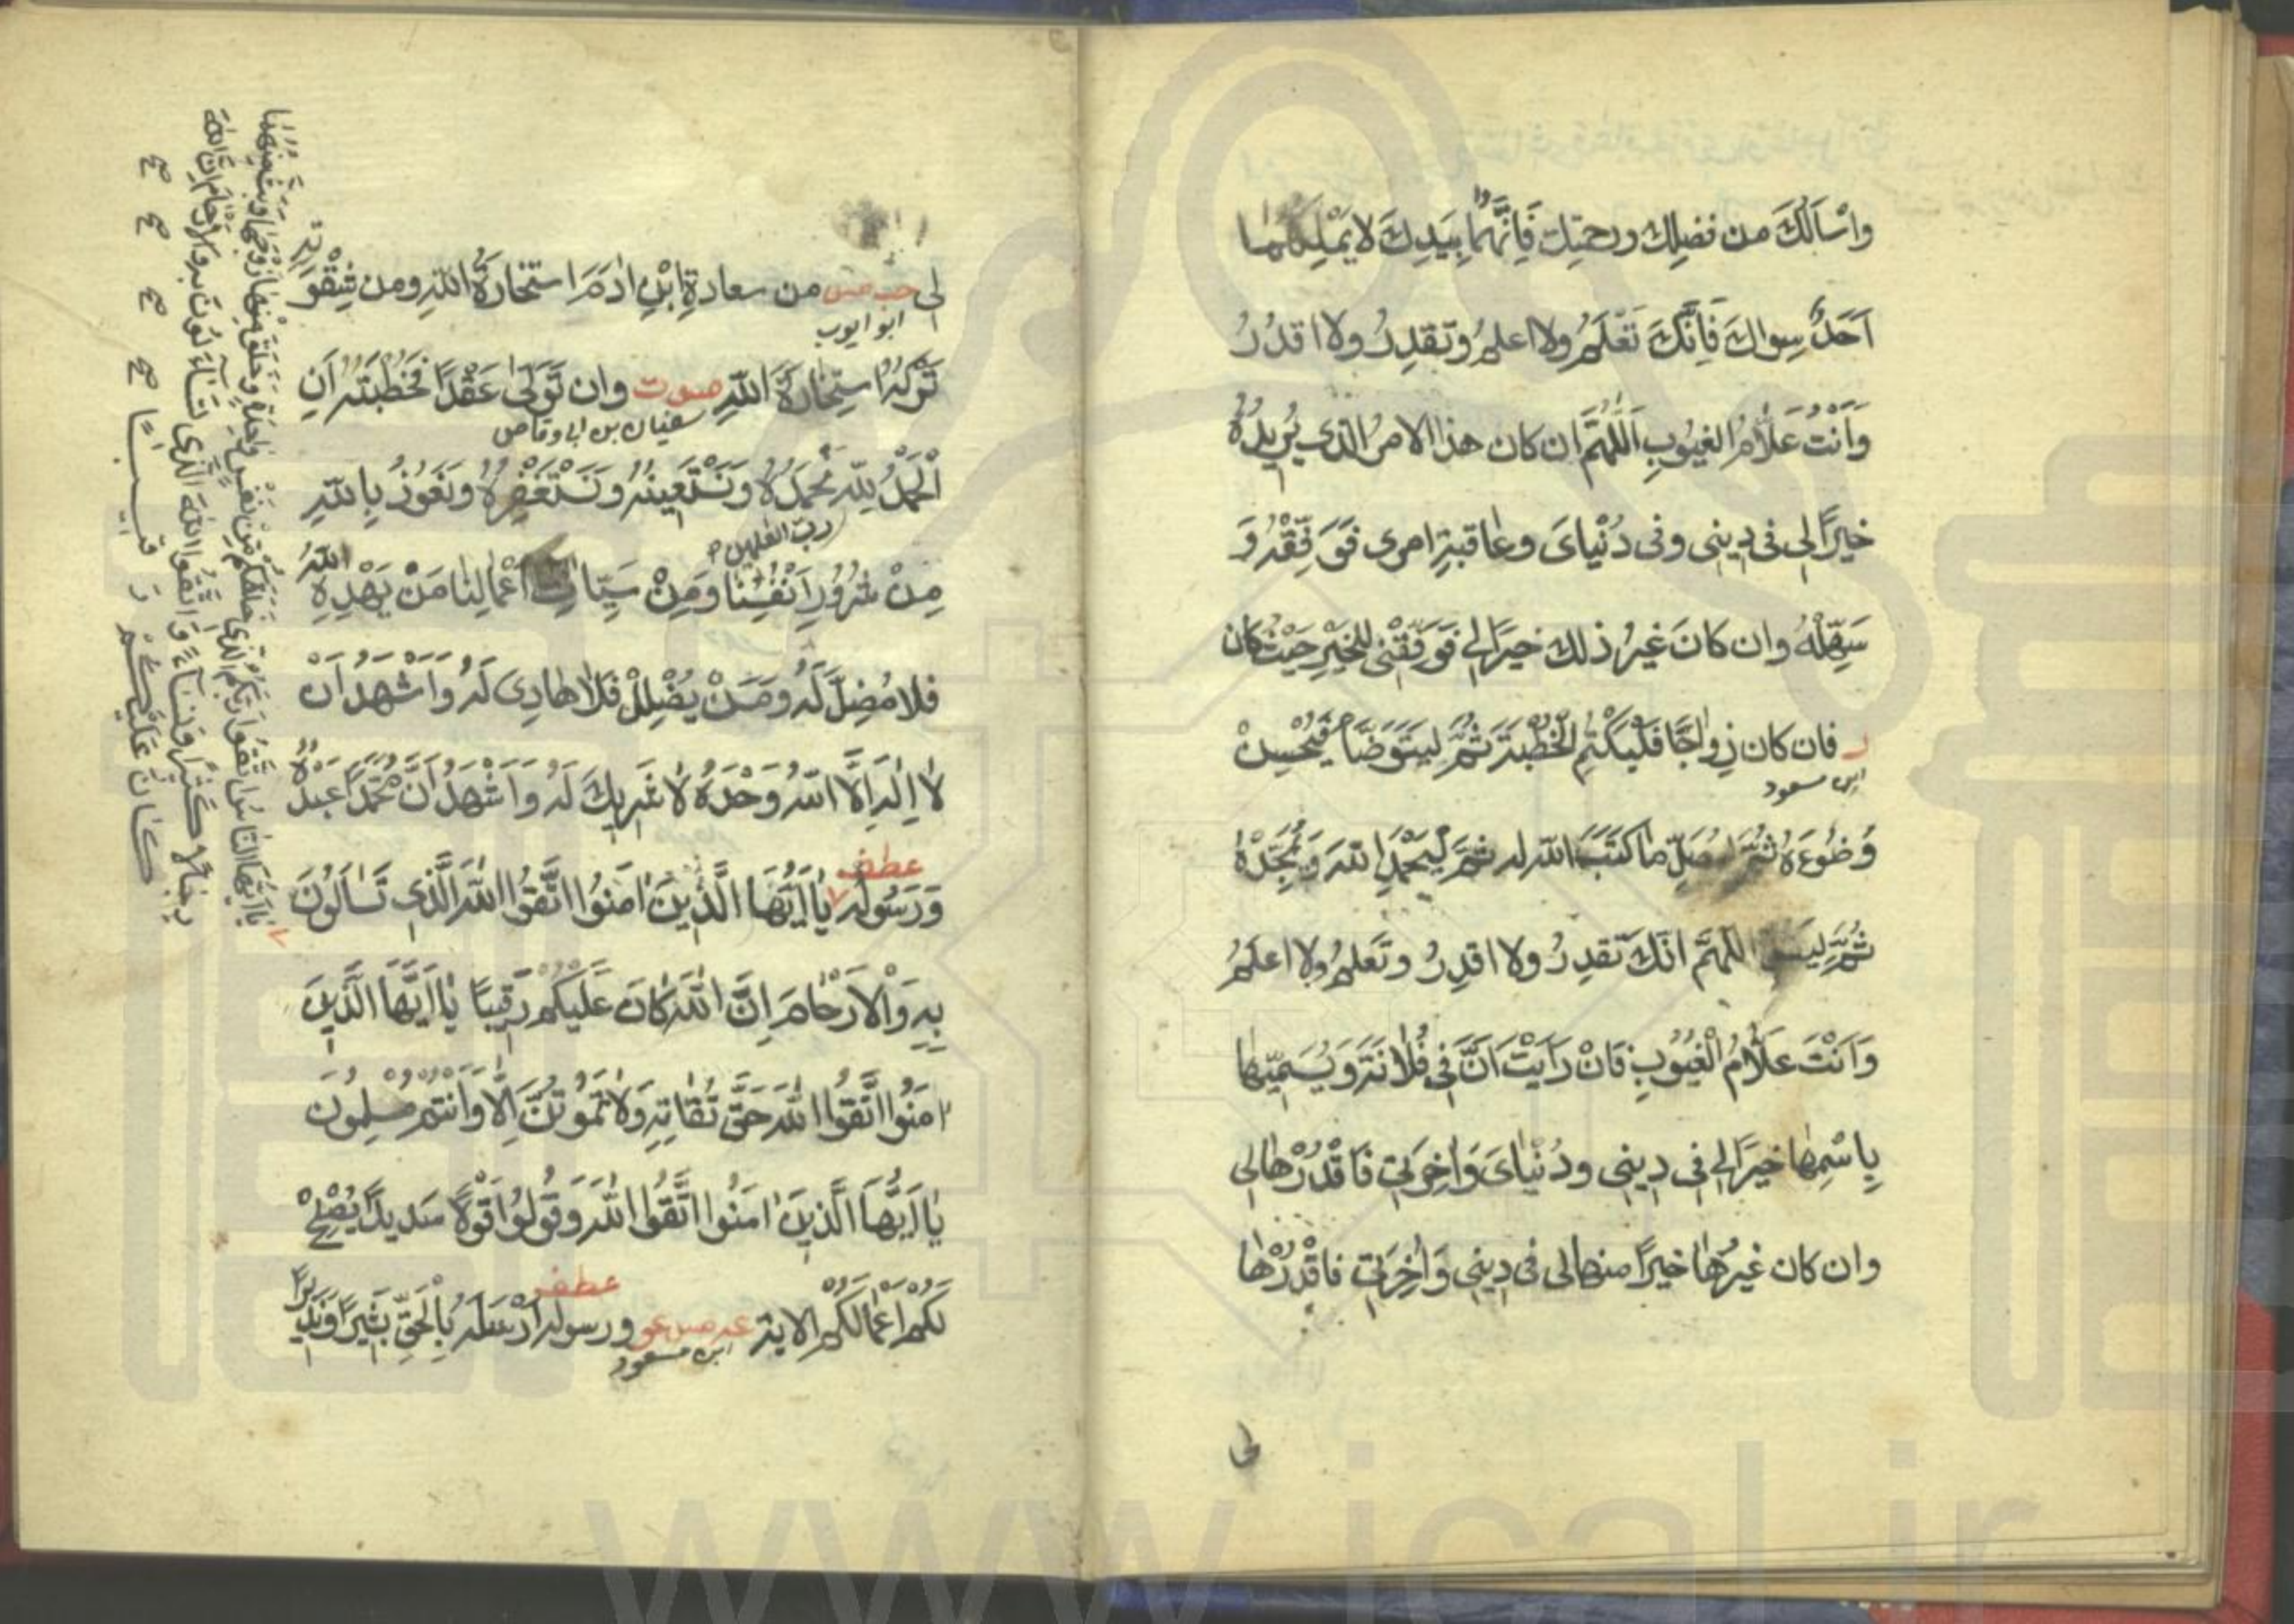 واَسْاَلُكَ من فضلِك ورحمتِك فَاِنَّهُما بِيَدِكَ لا يَمْلِكُهُما
اَحَدٌ سِواكَ فَاِنَّكَ تَعْلَمُ ولا اعلمُ وتَقدِرُ ولا اقدُرُ
وَاَنْتَ عَلّامُ الغيُوبِ اَللّٰهُمَّ ان كان هذا الامرُ الذى يُريدُهُ
خيرًا لى فى دِينِى وفى دُنْياىَ وعاقبةِ امرى فَوَفِّقْهُ وَ
سَهِّلْهُ وان كانَ غيرُ ذلك خيرًا لى فَوَفِّقْنِى للخَيْرِ حَيْثُ كان
ر فان كان زِواجًا فَلْيَكْتُمِ الْخُطْبَةَ ثُمَّ ليَتَوَضَّأْ فَيُحْسِنْ
ابن مسعود
وُضُوءَهُ ثُمَّ ليُصَلِّ ما كَتَبَ اللّه له ثمَّ لْيَحْمَدِ اللّهَ وَيُمَجِّدْهُ
ثُمَّ لِيَقُلْ اللّهمَّ انَّكَ تَقدِرُ ولا اقدِرُ وتَعلمُ ولا اعلَمُ
وَاَنْتَ عَلّامُ الْغيُوبِ فَانْ رَاَيْتَ اَنَّ فِى فُلانَةَ وَيُسَمِّيها
بِاسْمِها خيرًا لى فى دِينِى ودُنْياىَ وَآخِرَتِى فَاقْدُرْها لى
وان كان غيرُها خيرًا منها لى فى دِينِى وَآخِرَتِى فاقْدُرْها
لى
لى حب مس من سعادةِ ابْنِ آدَمَ استخارَةُ اللّهِ ومن شِقْوَتِهِ
ابو ايوب
تَرْكُهُ اسْتِخارَةَ اللّهِ مس ت وان تَوَلّى عَقْدًا فَخُطْبَتُه اَنِ
سفيان بن ابى وقاص
الْحَمْدُ لِلّهِ نَحْمَدُهُ وَنَسْتَعِينُهُ وَنَسْتَغْفِرُهُ ونَعُوذُ بِاللّهِ
ربّ العٰلمين
مِنْ شُرُورِ اَنْفُسِنا وَمِنْ سَيِّئاتِ اَعْمالِنا مَنْ يَهْدِهِ اللّهُ
فلا مُضِلَّ لَهُ ومَنْ يُضْلِلْ فَلا هادِىَ لَهُ وَاَشْهَدُ اَنْ
لا اِلٰهَ اِلَّا اللّهُ وَحْدَهُ لا شَرِيكَ لَهُ وَاَشْهَدُ اَنَّ مُحَمَّدًا عَبْدُهُ
عطف
وَرَسُولُه يا اَيُّهَا الَّذِينَ آمَنُوا اتَّقُوا اللّهَ الَّذِى تَساءَلُونَ
بِهِ وَالْاَرْحامَ اِنَّ اللّهَ كانَ عَلَيْكُمْ رَقِيبًا يا اَيُّهَا الَّذِينَ
آمَنُوا اتَّقُوا اللّهَ حَقَّ تُقاتِهِ وَلا تَمُوتُنَّ اِلّا وَاَنْتُمْ مُسْلِمُونَ
يا اَيُّهَا الَّذِينَ آمَنُوا اتَّقُوا اللّهَ وَقُولُوا قَوْلًا سَدِيدًا يُصْلِحْ
عطف
لَكُمْ اَعْمالَكُمْ الاية عه مس عو ورسولُه اَرْسَلَهُ بِالْحَقِّ بَشِيرًا وَنَذِيرًا
ابن مسعود
يا اَيُّهَا النّاسُ اتَّقُوا رَبَّكُمُ الَّذِى خَلَقَكُمْ مِنْ نَفْسٍ واحِدَةٍ وَخَلَقَ مِنْها زَوْجَها وَبَثَّ مِنْهُما
رِجالًا كَثِيرًا وَنِساءً وَاتَّقُوا اللّهَ الَّذِى تَساءَلُونَ بِهِ وَالْاَرْحامَ اِنَّ اللّهَ
كانَ عَلَيْكُمْ رَقِيبًا صح صح صح صح
www.ical.ir